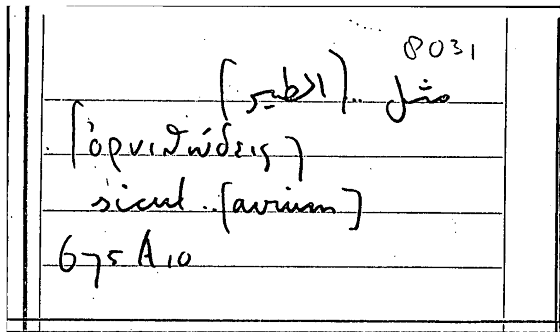 8031
مثل .. [الطير]
[ὀρνιθώδεις]
sicut .. [avium]
675 A 10